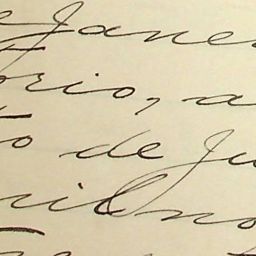 e Jane
orio, a
to de Ju
ril no